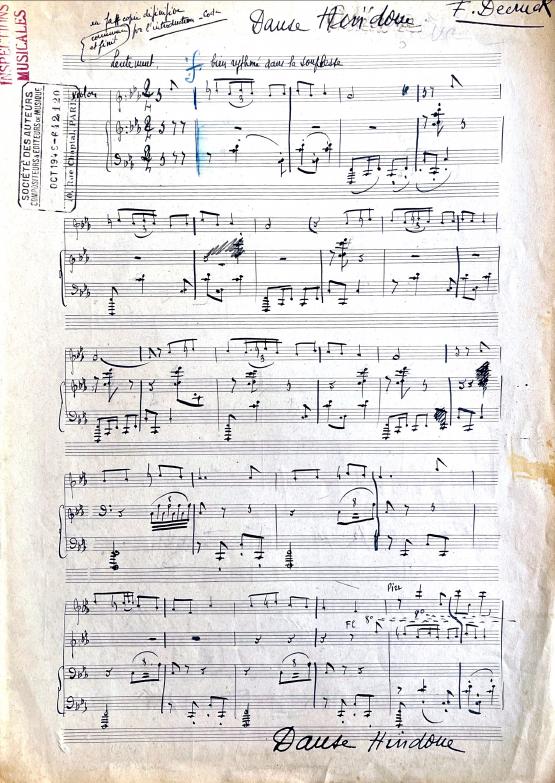 INSPECTIONS
MUSICALES
la copie définitive
pour l'introduction
et finir
Danse Hindoue
F. Decruck
lentement.
f bien rythmé dans la souplesse
violon
SOCIÉTÉ DES AUTEURS
COMPOSITEURS & ÉDITEURS DE MUSIQUE
OCT 1946
10, Rue Chaptal, PARIS
3
3
3
3
Pizz
8°
8°
Danse Hindoue